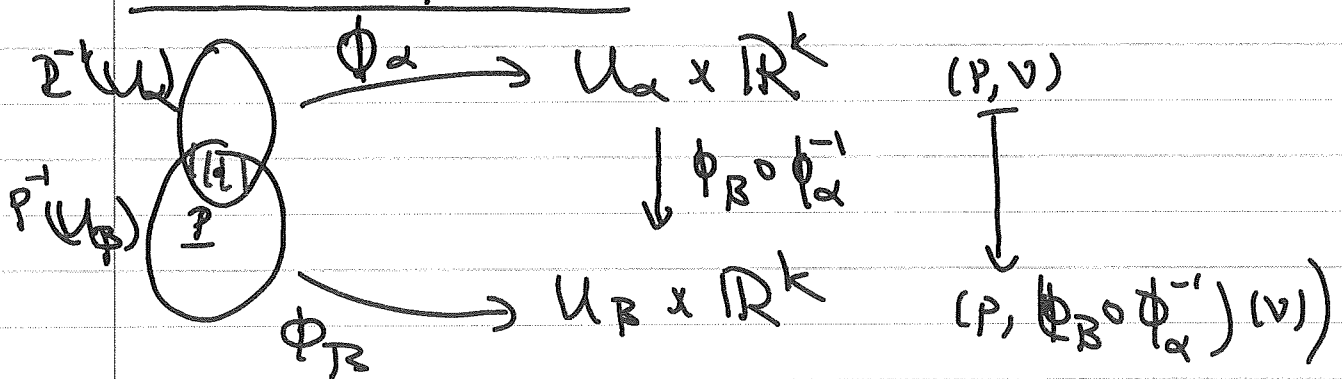 P⁻¹(U_α) ϕ_α U_α × ℝᵏ (P, v)
ϕ_β ∘ ϕ_α⁻¹
P⁻¹(U_β) P
ϕ_β U_β × ℝᵏ (P, (ϕ_β ∘ ϕ_α⁻¹)(v))